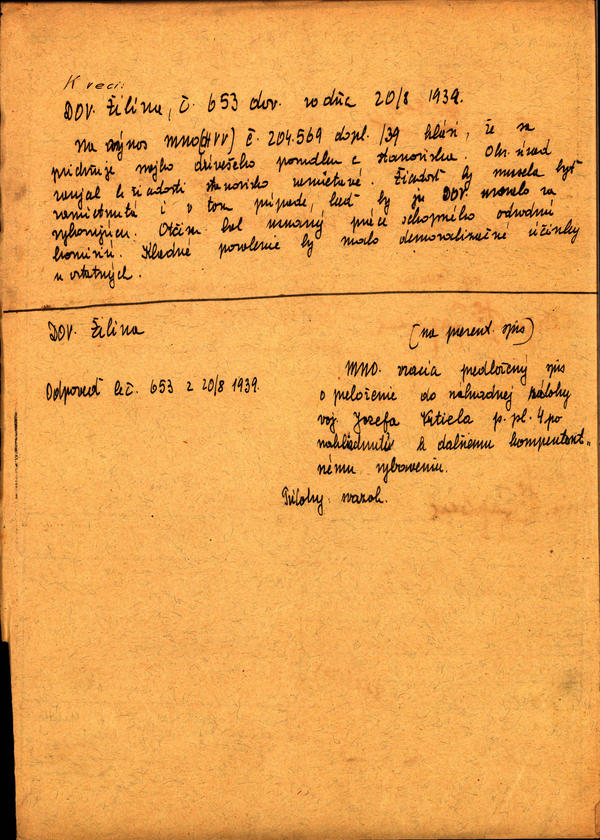 K veci:
DOV. Žilina, č. 653 dov. zo dňa 20/8 1939.
Na výnos MNO(HVV) č. 204.569 dopl. /39 hlási, že sa
pridržuje svojho drivešeho posudku a stanoviska. Okr. úrad
zaujal k žiadosti stanovisko zamietavé. Žiadosť by musela byť
zamietnutá i v tom prípade, keď by ju DOV. uznalo za
vyhovujúcu. Otčim bol uznaný práce schopného odvodnú
komisiu. Kladné povolenie by malo demoralizačné účinky
u ostatných.
DOV. Žilina
(na prezent. spis)
Odpoveď k č. 653 z 20/8 1939.
MNO. vracia predložený spis
o preloženie do náhradnej zálohy
voj. Jozefa p. pl. 4 po
nahliadnutí k ďalšiemu kompetent-
nému vybaveniu.
Prílohy: nazok.